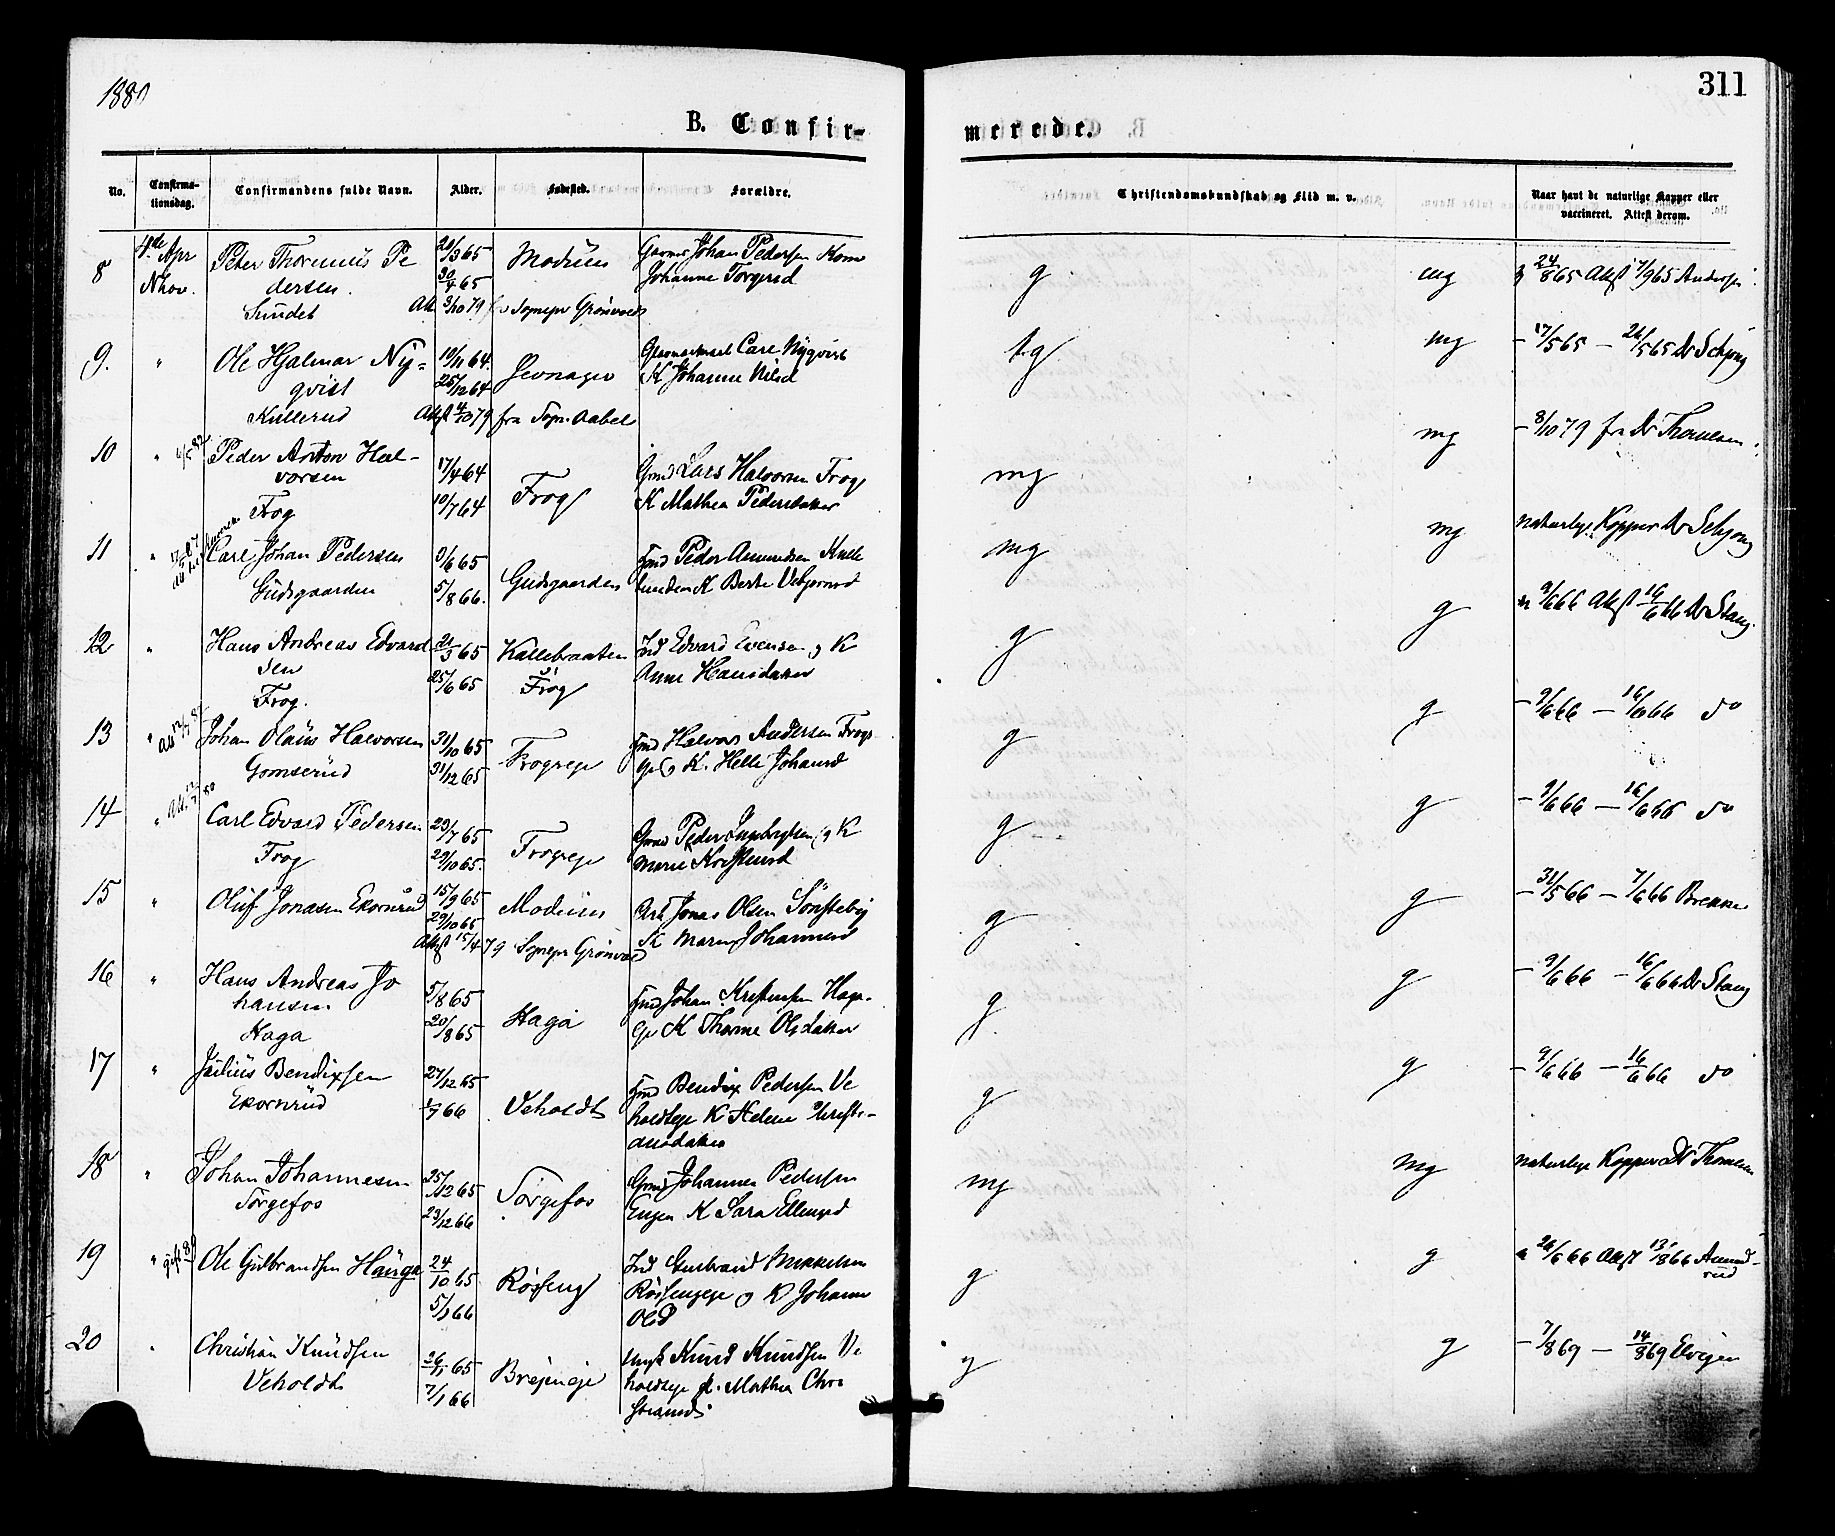 1880
311
B. Confir-
merede.
No.
Confirma-
tionsdag.
Confirmandens fulde Navn.
Alder.
Fødested.
Forældre.
Christendomskundskab og Flid m. v.
Naar havt de naturlige Kopper eller
vaccineret. Attest derom.
8 4de Apr Peter Pe 20/3 65 Modum Johan Pedersen
Nhov. dersen 30/4 65 Johanne Torgersd g mg 24/8 65 Attest 7/9 65
Sundet Att. 3/10 79 fra Sognepr Grønvold
9. " Ole Hjalmar Ny- 19/11 64 Jevnager Carl Nyqvist
qvist 25/12 64 K Johanne Nilsd tg mg - 17/5 65 - 26/5 65 Dr Schjong
Kullerud Attest 4/10 79 fra Sogn. Aabel
10 " Peder Anton Hal-
vorsen 17/4 64 Frog Lars Halvorsen Frog
Frog 10/7 64 K Mathea Pedersdatter mg mg - 8/10 79 fra Dr Thomesen
11 " Carl Johan Pedersen 9/6 65 Gudsgaarden Peder Amundsen
Gudsgaarden 5/8 66. K Berthe mg mg naturlige Kopper Dr Schjong
12 " Hans Andreas Edvard 21/3 65 Kallebraaten Edvard Evensen og K
sen 25/6 65 Frog Anne Hansdatter g g 9/6 66 Attest 16/6 66 Dr Stang
Frog.
13 " Johan Olaus Halvorsen 31/10 65 Frogeje Halvor Andersen Frogs
Gomserud 31/12 65 K. Helle Johansd g g - 9/6 66 - 16/6 66 do
14 " Carl Edvard Pedersen 23/7 65 Frogeje Peder Ingebrigtsen og K
Frog 29/10 65. Marie Kristensd g g - 9/6 66 - 16/6 66 do
15 " Oluf Jonasen Ekornrud 15/9 65 Modum Arb Jonas Olsen Sønsteby
29/10 65 K Maren Johannesd g g - 31/5 66 - 7/6 66 Brekke
Attest 15/4 79 Sognepr Grønvold
16 " Hans Andreas Jo
hansen 5/8 65 Haga Johan Kristensen Haga-
Haga 20/8 65 K Thorine Olsdatter g g - 9/6 66 - 16/6 66 Dr Stang
17 " Julius Bendixsen 27/12 65 Veholdt Bendix Pedersen Ve
Ekornrud 66 holdteje K Helene Christi-
ansdatter g g - 9/6 66 - 16/6 66 do
18 " Johan Johannesen 25/12 65 Torgefos Johannes Pedersen
Torgefos 23/12 66 Engen K Sara Ellingsd mg mg naturlige Kopper Dr Thomesen
19 " Ole Gulbrandsen Hauga 24/10 65 Røsseng Gulbrand Mikkelsen
5/1 66 Røssengeje og K Johanne
Olsd g g 26/6 66 Attest 13/8 66 Amund-
rud
20 " Christian Knudsen 26/11 65 Brejeneje Knud Knudsen Ve
Veholdt 7/1 66 holdteje K. Mathea Chri
stiansd g g - 7/8 69 - 14/8 69